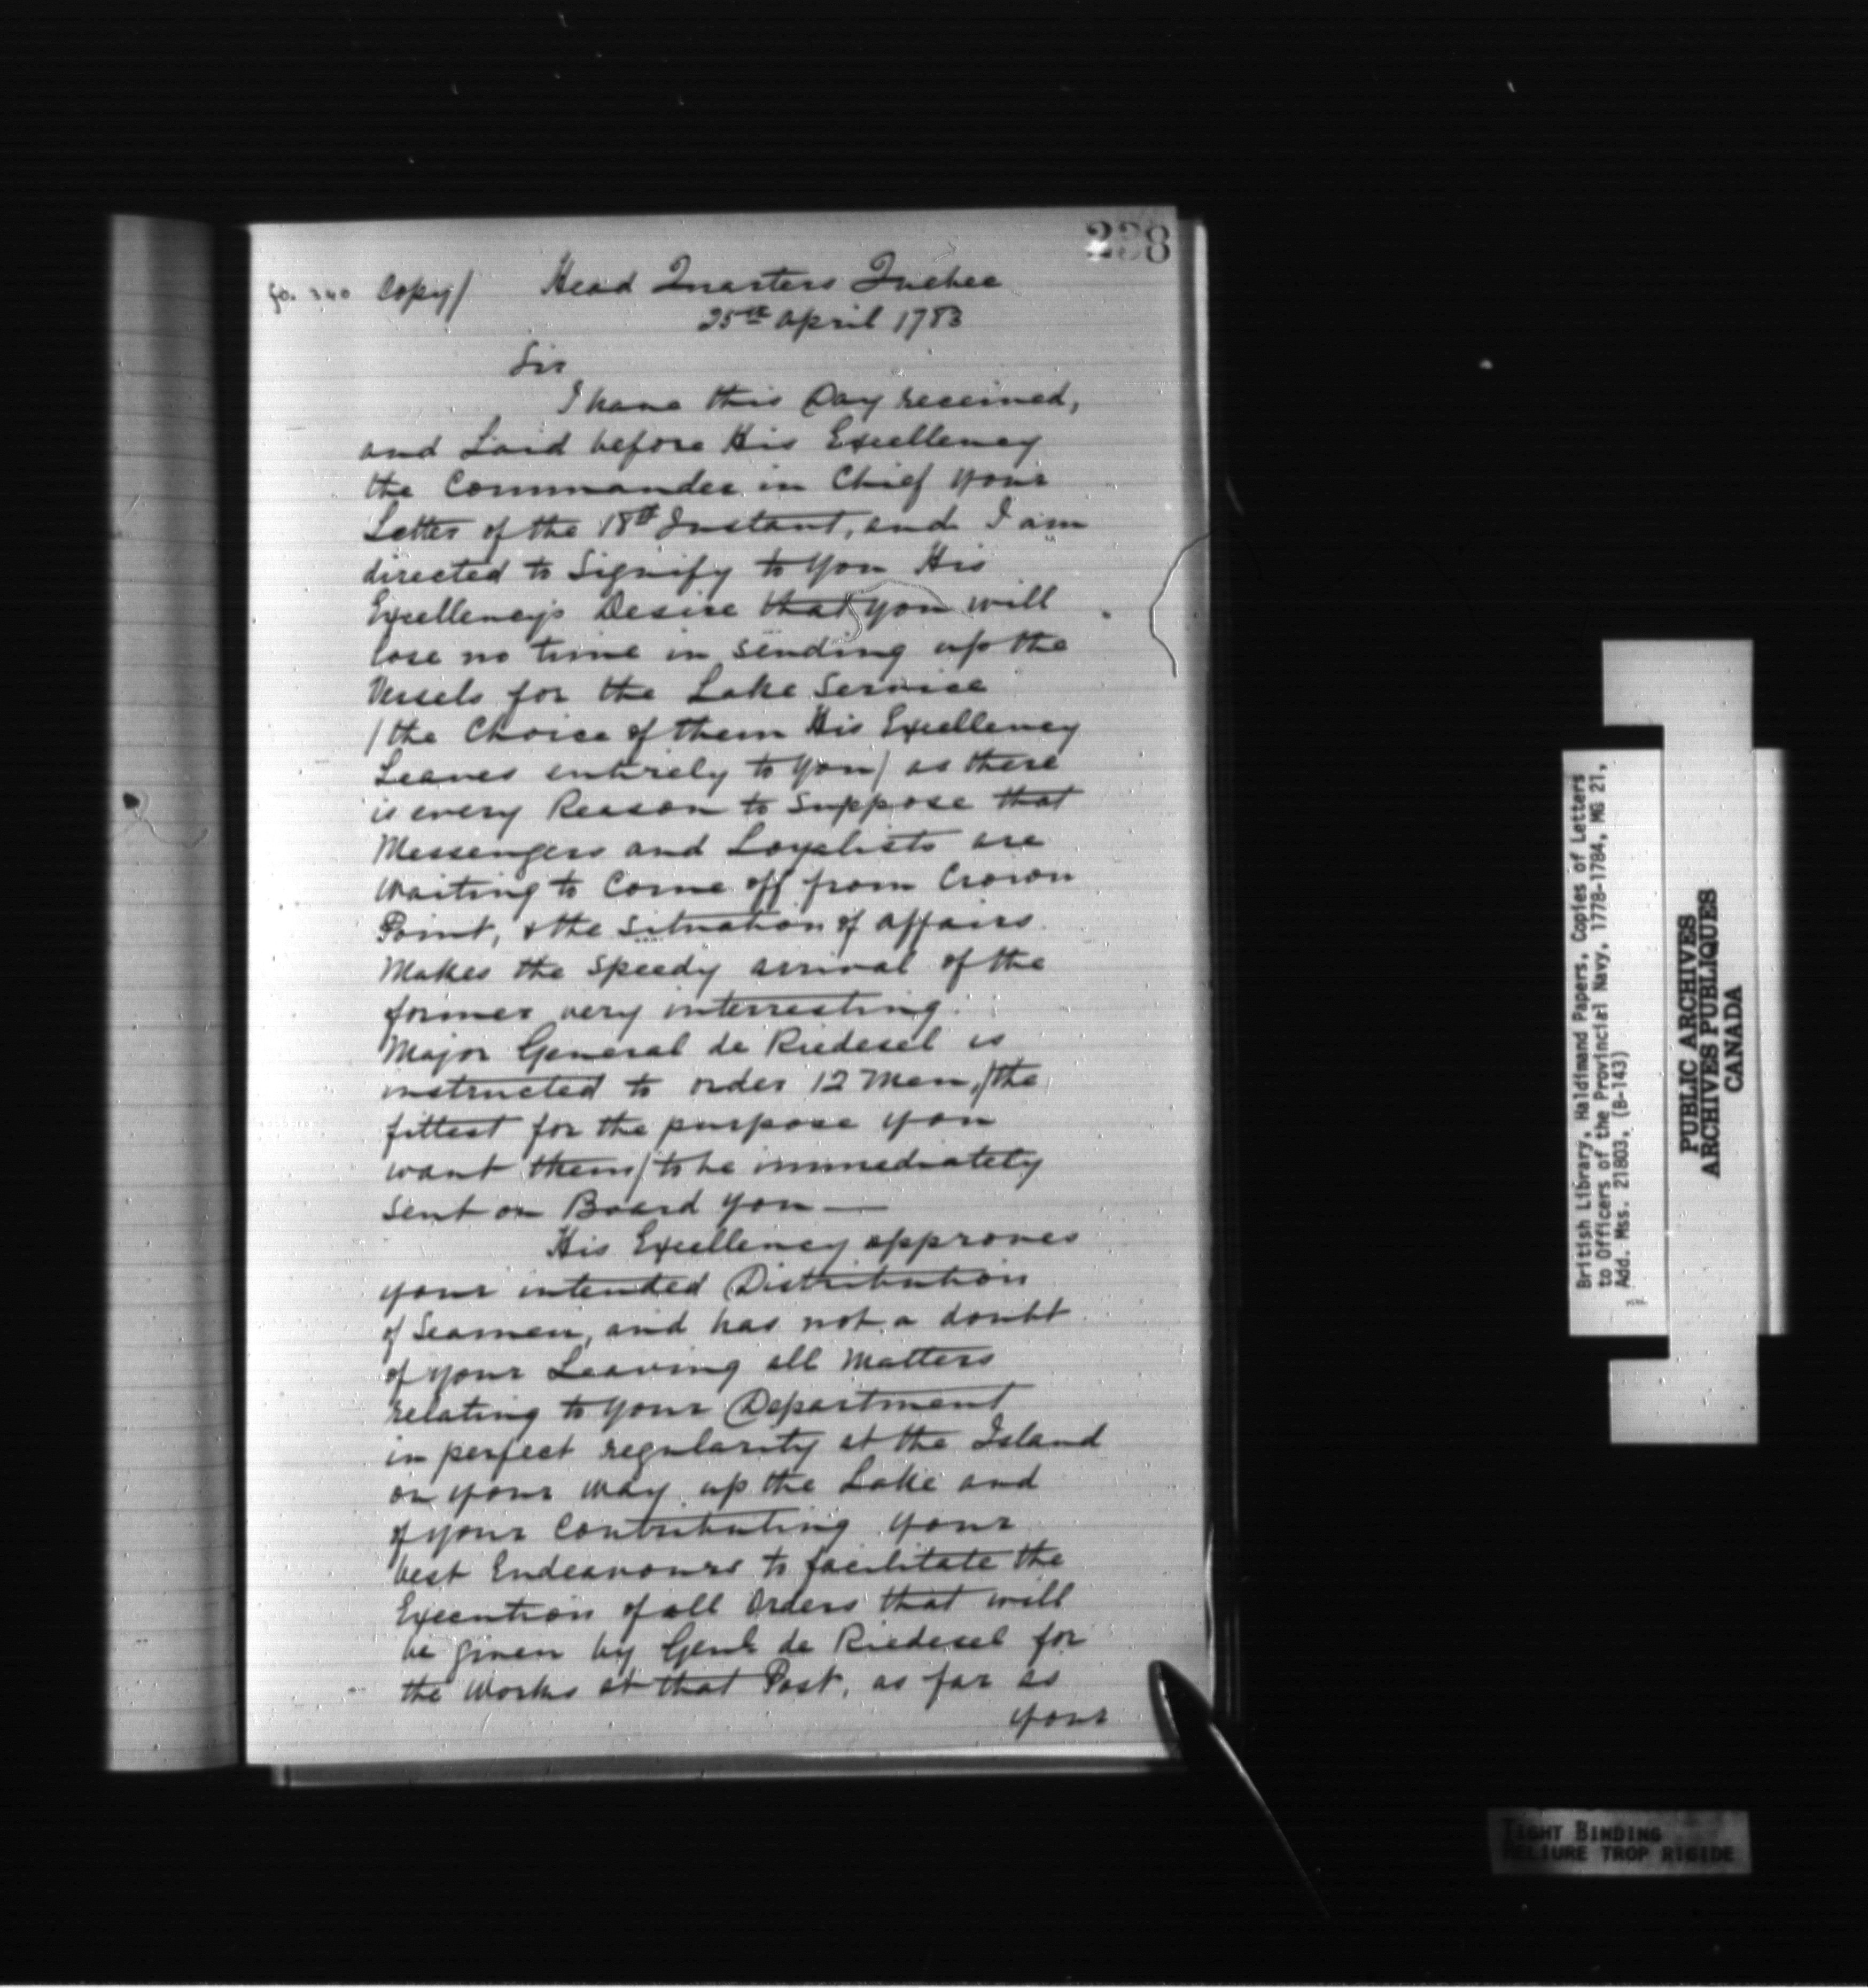 238
fo. 240 Copy/ Head Quarters Quebec
25th April 1783
Sir
I have this Day received,
and Laid before His Excellency
the Commander in Chief your
Letter of the 18th Instant, and I am
directed to Signify to You His
Excellency's Desire that you will
lose no time in sending up the
Vessels for the Lake Service
/the Choice of them His Excellency
Leaves entirely to you/ as there
is every Reason to Suppose that
Messengers and Loyalists are
waiting to Come off from Crown
Point, & the Situation of affairs
Makes the Speedy arrival of the
former very interresting.
Major General de Riedesel is
instructed to order 12 Men, /the
fittest for the purpose you
want them/ to be immediately
sent on Board you —
His Excellency approves
your intended Distribution
of Seamen, and has not a doubt
of your Leaving all Matters
relating to your Department
in perfect regularity at the Island
on your way up the Lake and
of your Contributing your
best Endeavours to facilitate the
Execution of all Orders that will
be given by Genl. de Riedesel for
the Works at that Post, as far as
your
British Library, Haldimand Papers, Copies of Letters
to Officers of the Provincial Navy, 1778-1784, MG 21,
Add. Mss. 21803, (B-143)
PUBLIC ARCHIVES
ARCHIVES PUBLIQUES
CANADA
TIGHT BINDING
RELIURE TROP RIGIDE